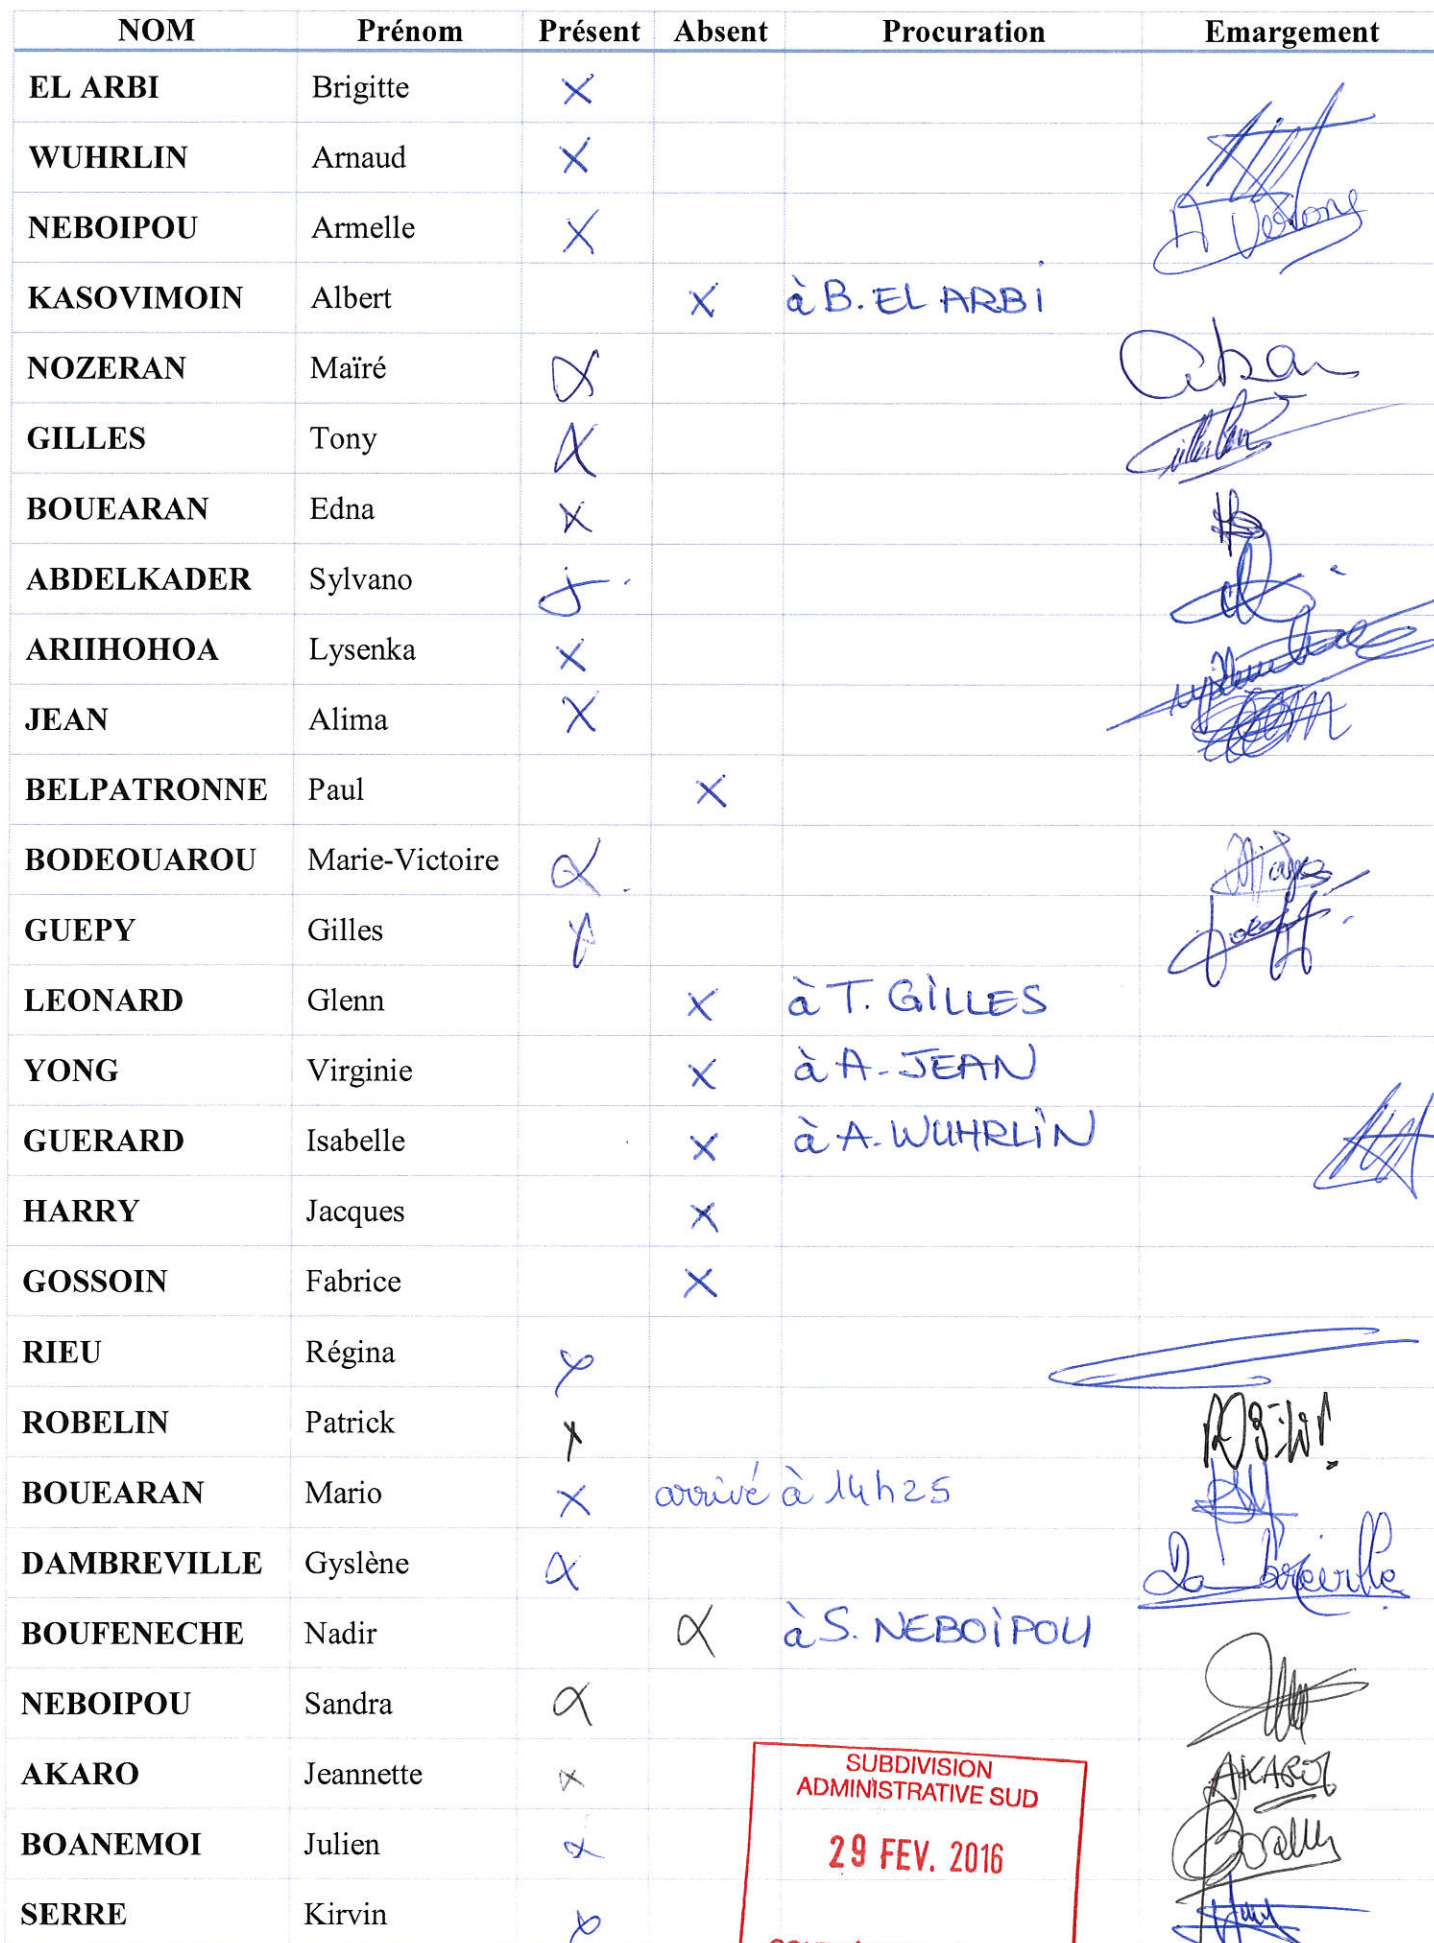 NOM Prénom Présent Absent Procuration Emargement
EL ARBI Brigitte X
WUHRLIN Arnaud X
NEBOIPOU Armelle X
KASOVIMOIN Albert X à B. EL ARBI
NOZERAN Maïré X
GILLES Tony X
BOUEARAN Edna X
ABDELKADER Sylvano
ARIIHOHOA Lysenka X
JEAN Alima X
BELPATRONNE Paul X
BODEOUAROU Marie-Victoire X
GUEPY Gilles X
LEONARD Glenn X à T. GILLES
YONG Virginie X à A. JEAN
GUERARD Isabelle X à A. WUHRLIN
HARRY Jacques X
GOSSOIN Fabrice X
RIEU Régina X
ROBELIN Patrick X
BOUEARAN Mario X arrivé à 14h25
DAMBREVILLE Gyslène X Dambreville
BOUFENECHE Nadir X à S. NEBOIPOU
NEBOIPOU Sandra X
AKARO Jeannette X AKARO
BOANEMOI Julien X
SERRE Kirvin X
SUBDIVISION
ADMINISTRATIVE SUD
29 FEV. 2016